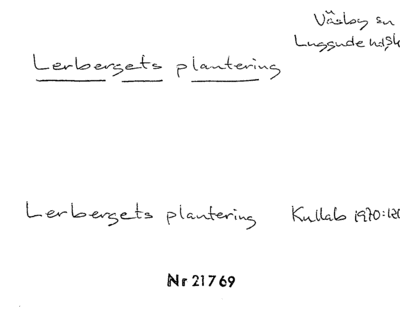 Väsby sn
Luggude hd, Sk
Lerbergets plantering
Lerbergets plantering Kullab 1970:120
Nr 21769